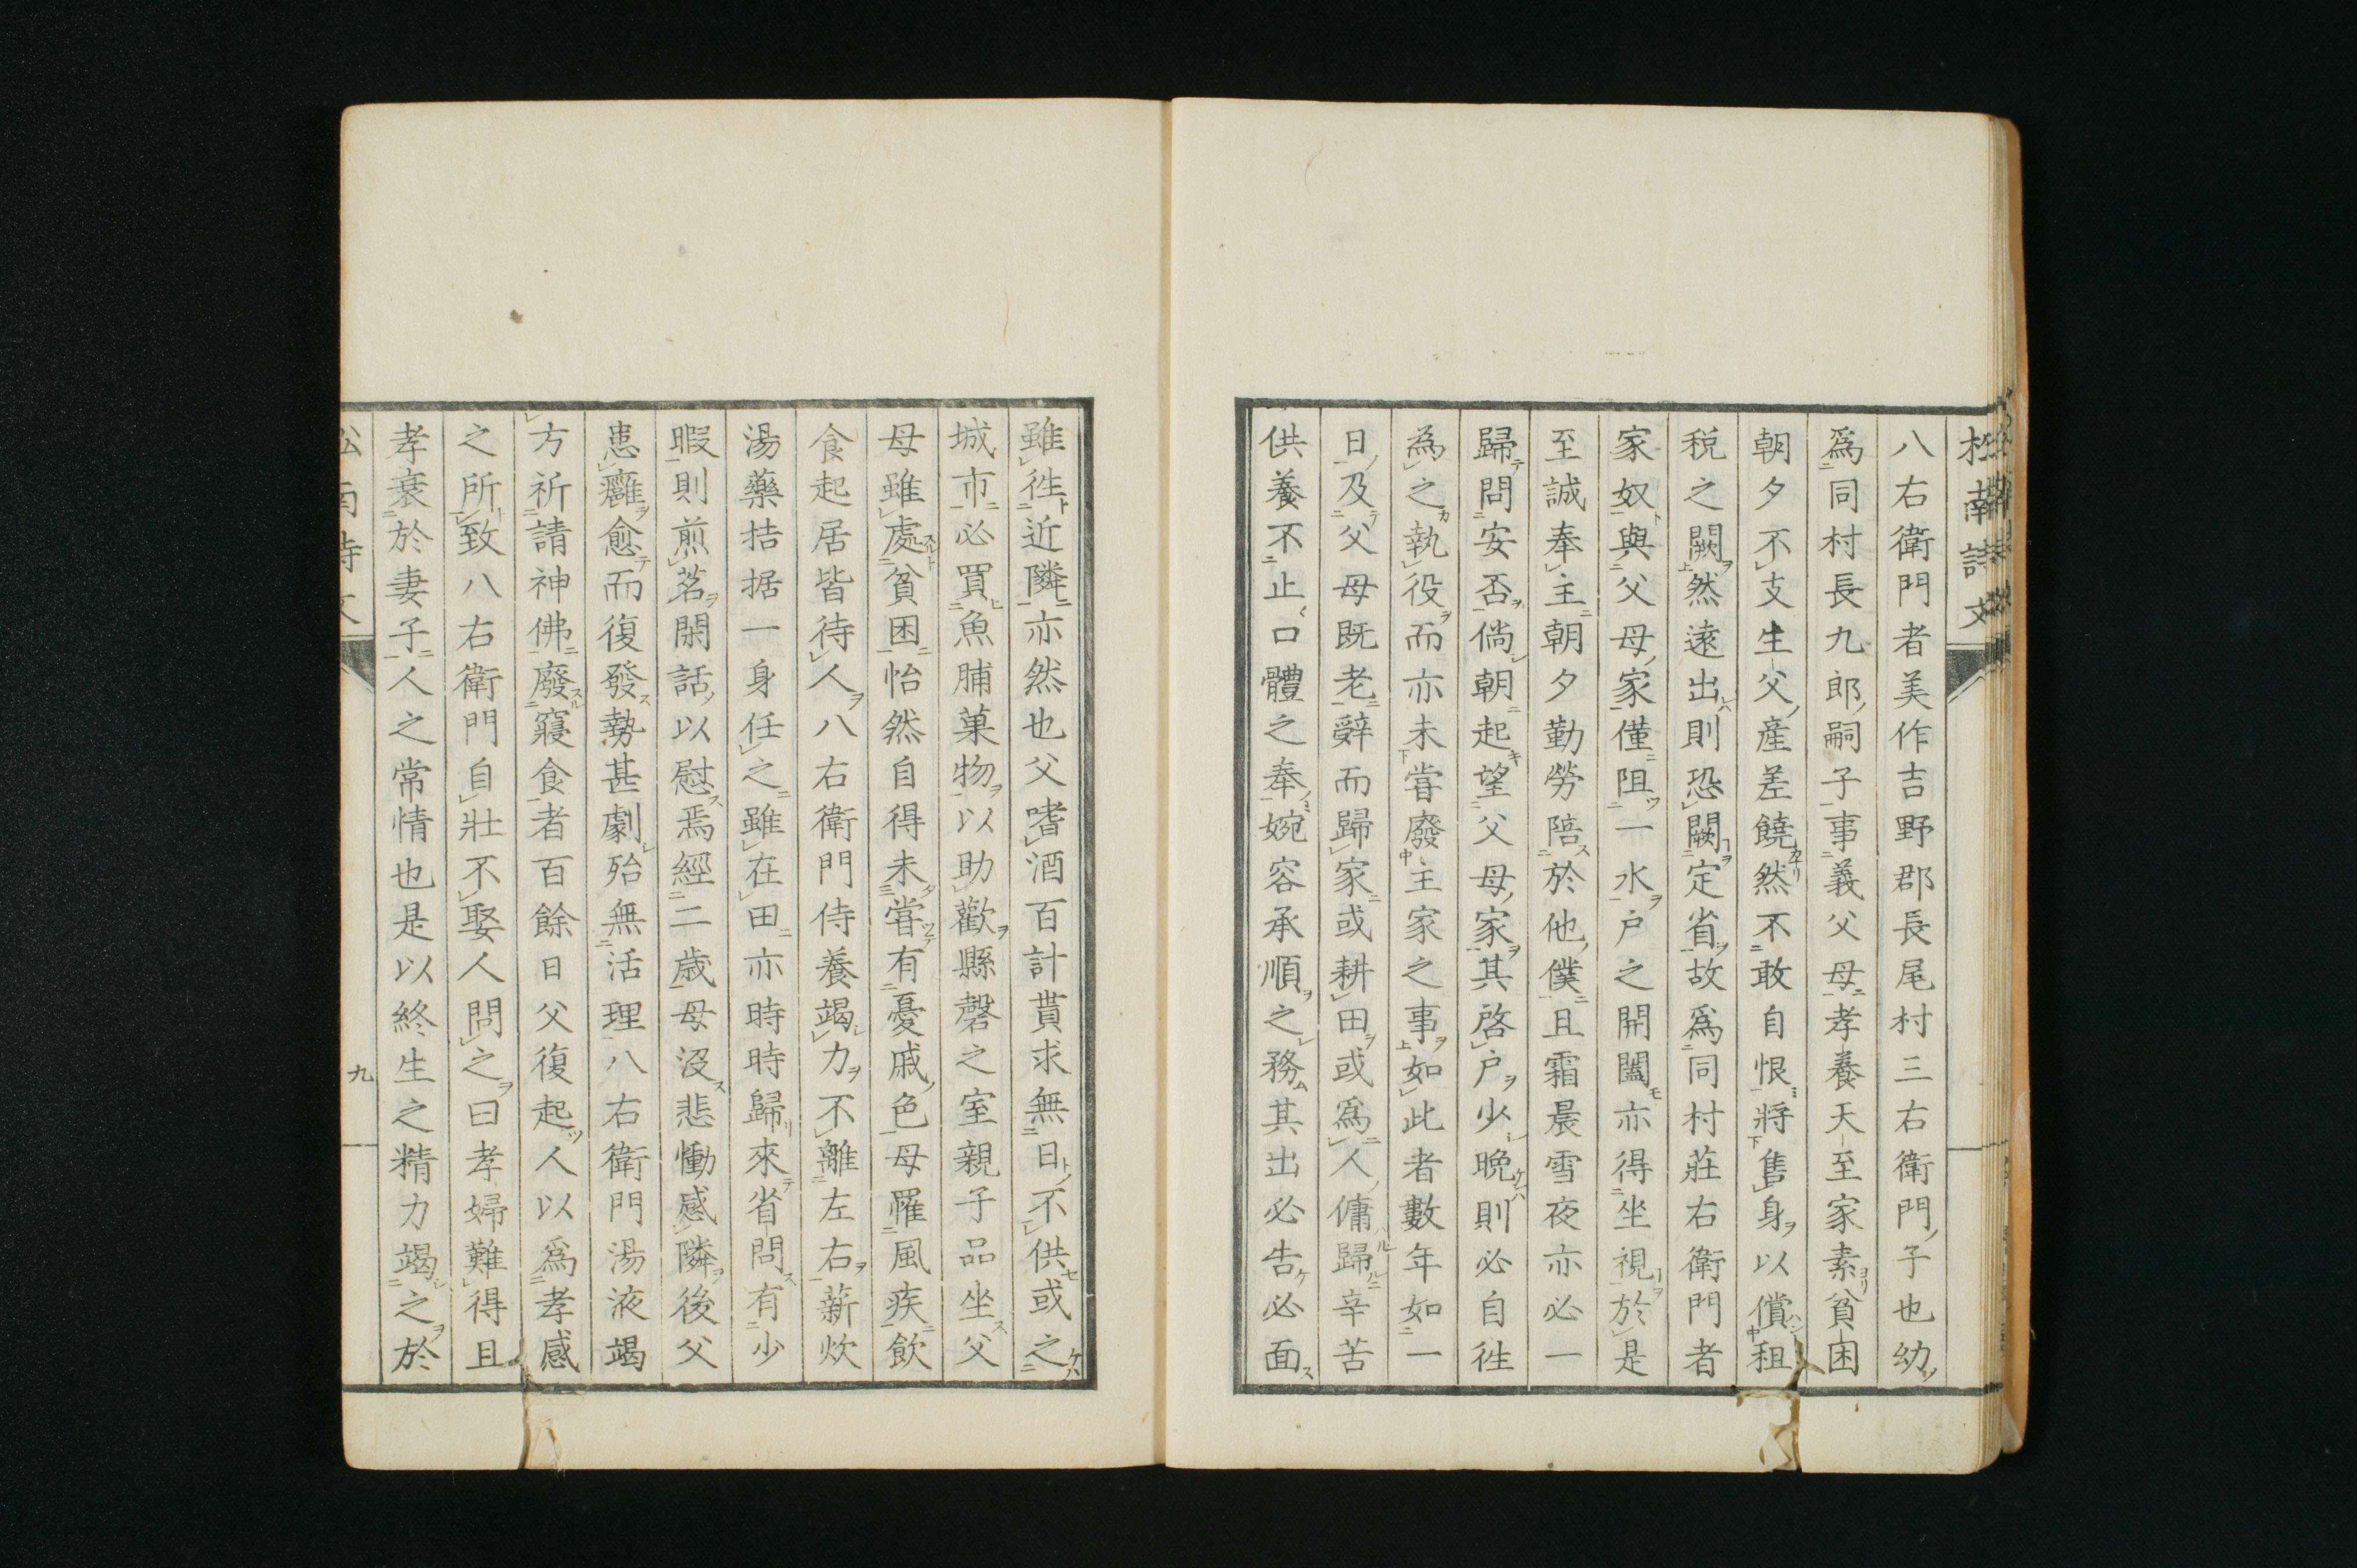 八右衛門者美作吉野郡長尾村三右衛門子也幼
爲同村長九郎嗣子事義父母孝養天至家素貧困
朝夕不支生父産差饒然不敢自恨將售身以償租
税之闕然遠出則恐闕定省故爲同村莊右衛門者
家奴與父母家僅阻一水户之開闔亦得坐視於是
至誠奉主朝夕勤勞陪於他僕且霜晨雪夜亦必一
歸問安否倘朝起望父母家其啓户少晩則必自徃
為之執役而亦未甞廢主家之事如此者數年如一
日及父母既老辭而歸家或耕田或爲人傭歸辛苦
供養不止口體之奉婉容承順之務其出必告必面
雖徃近隣亦然也父嗜酒百計貰求無日不供或之
城市必買魚脯菓物以助歡縣磬之室親子品坐父
母雖處貧困怡然自得未甞有憂戚色母罹風疾飲
食起居皆待人八右衛門侍養竭力不離左右薪炊
湯藥拮据一身任之雖在田亦時時歸來省問有少
暇則煎茗閑話以慰焉經二歳母沒悲慟感隣後父
患癰愈而復發勢甚劇殆無活理八右衛門湯液竭
方祈請神佛廢寢食者百餘日父復起人以爲孝感
之所致八右衛門自壯不娶人問之曰孝婦難得且
孝衰於妻子人之常情也是以終生之精力竭之於
九